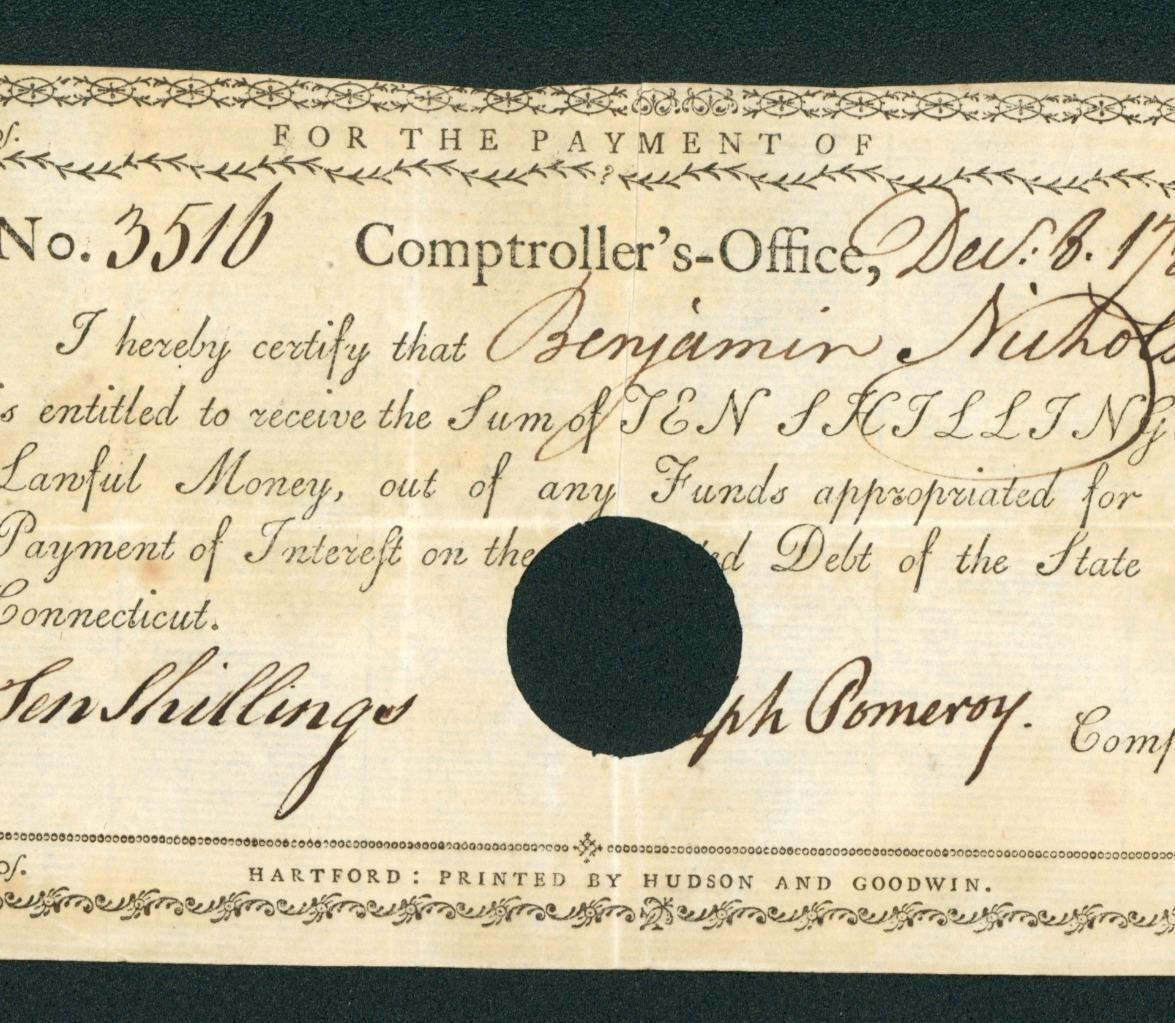 os. FOR THE PAYMENT OF
No. 3516 Comptroller's-Office, Decr. 8. 17
I hereby certify that Benjamin Nichols
s entitled to receive the Sum of TEN SHILLING
Lawful Money, out of any Funds appropriated for
Payment of Intereſt on the ed Debt of the State
Connecticut.
Ten Shillings ph Pomeroy. Comp
os. HARTFORD: PRINTED BY HUDSON AND GOODWIN.